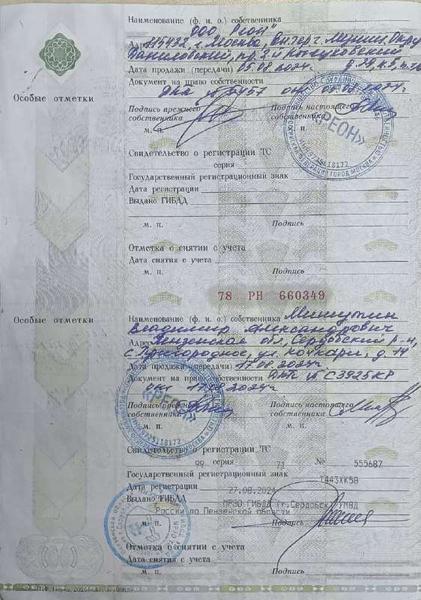 Наименование (ф. и. о.) собственника
ООО "Реон"
115432, г. Москва, Вн.тер.г.
Даниловский, пр. 2-й Кожуховский
Дата продажи (передачи) 05.08.2024г.
Документ на право собственности
Особые отметки
ДКП от 05.08.2024г.
Подпись прежнего собственника
Подпись настоящего собственника
м. п.
«РЕОН»
Свидетельство о регистрации ТС
серия
Государственный регистрационный знак
Дата регистрации
Выдано ГИБДД
м. п. Подпись
Отметка о снятии с учета
Дата снятия с учета
м. п. Подпись
78 РН 660349
Особые отметки
Наименование (ф. и. о.) собственника
Владимир Александрович
Адрес Пензенская обл, Сердобский р-н,
с. Пригородное, ул.
Дата продажи (передачи) 17.08.2024г
Документ на право собственности ДКП
от 17.08.2024г
Подпись прежнего собственника
Подпись настоящего собственника
м. п.
«РЕОН»
Свидетельство о регистрации ТС
99 серия 73 № 555687
Государственный регистрационный знак
Дата регистрации
Выдано ГИБДД
МРЭО ГИБДД (г.Сердобск) УМВД
России по Пензенской области
м. п. Подпись
Отметка о снятии с учета
Дата снятия с учета
м. п. Подпись